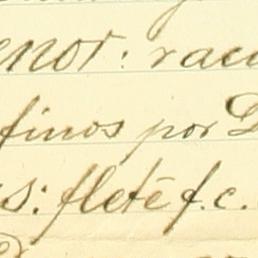 enor: raci
finos por D
s: flete f.c.